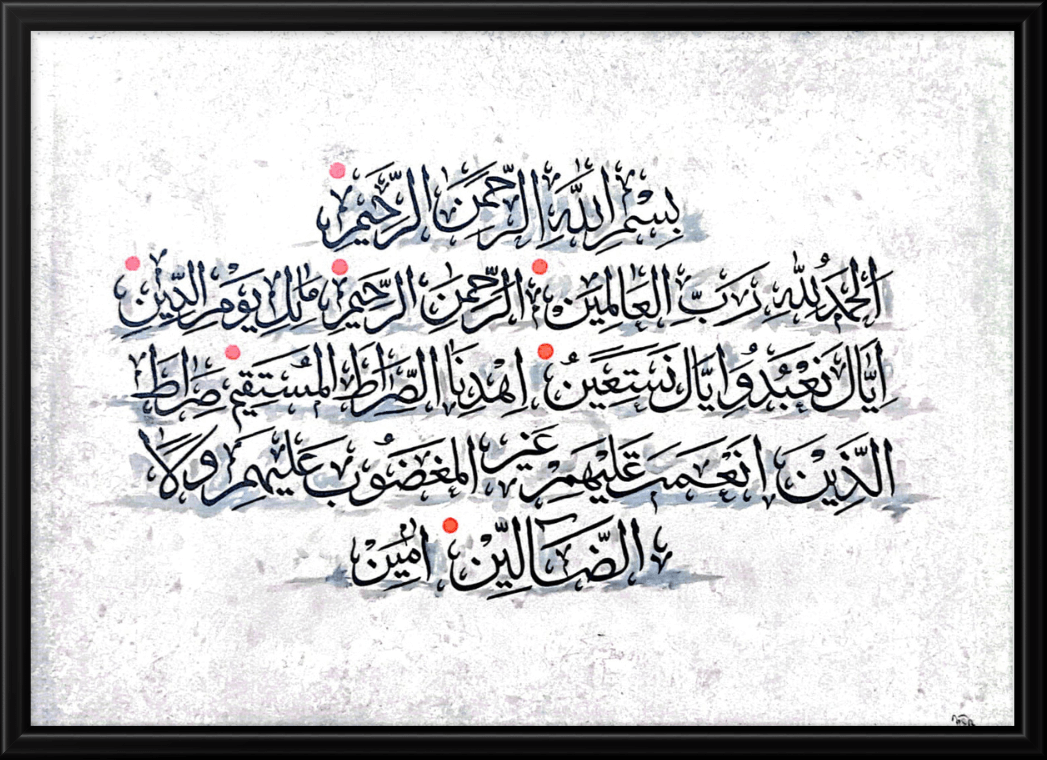 بِسْمِ اللَّهِ الرَّحْمَنِ الرَّحِيمِ
الْحَمْدُ لِلَّهِ رَبِّ الْعَالَمِينَ الرَّحْمَنِ الرَّحِيمِ مَالِكِ يَوْمِ الدِّينِ
إِيَّاكَ نَعْبُدُ وَإِيَّاكَ نَسْتَعِينُ اهْدِنَا الصِّرَاطَ الْمُسْتَقِيمَ صِرَاطَ
الَّذِينَ أَنْعَمْتَ عَلَيْهِمْ غَيْرِ الْمَغْضُوبِ عَلَيْهِمْ وَلَا
الضَّآلِّينَ آمِينَ